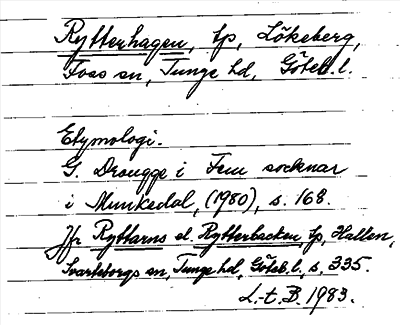 Rytterhagen, lp, Lökeberg,
Foss sn, Tunge hd, Göteb. l.
Etymologi.
G. Drougge i Fem socknar
i Munkedal, (1980), s. 168.
Jfr Ryttarns el. Rytterbacken, lp, Hallen,
Svarteborgs sn, Tunge hd, Göteb. l., s. 335.
L.-t. B. 1983.